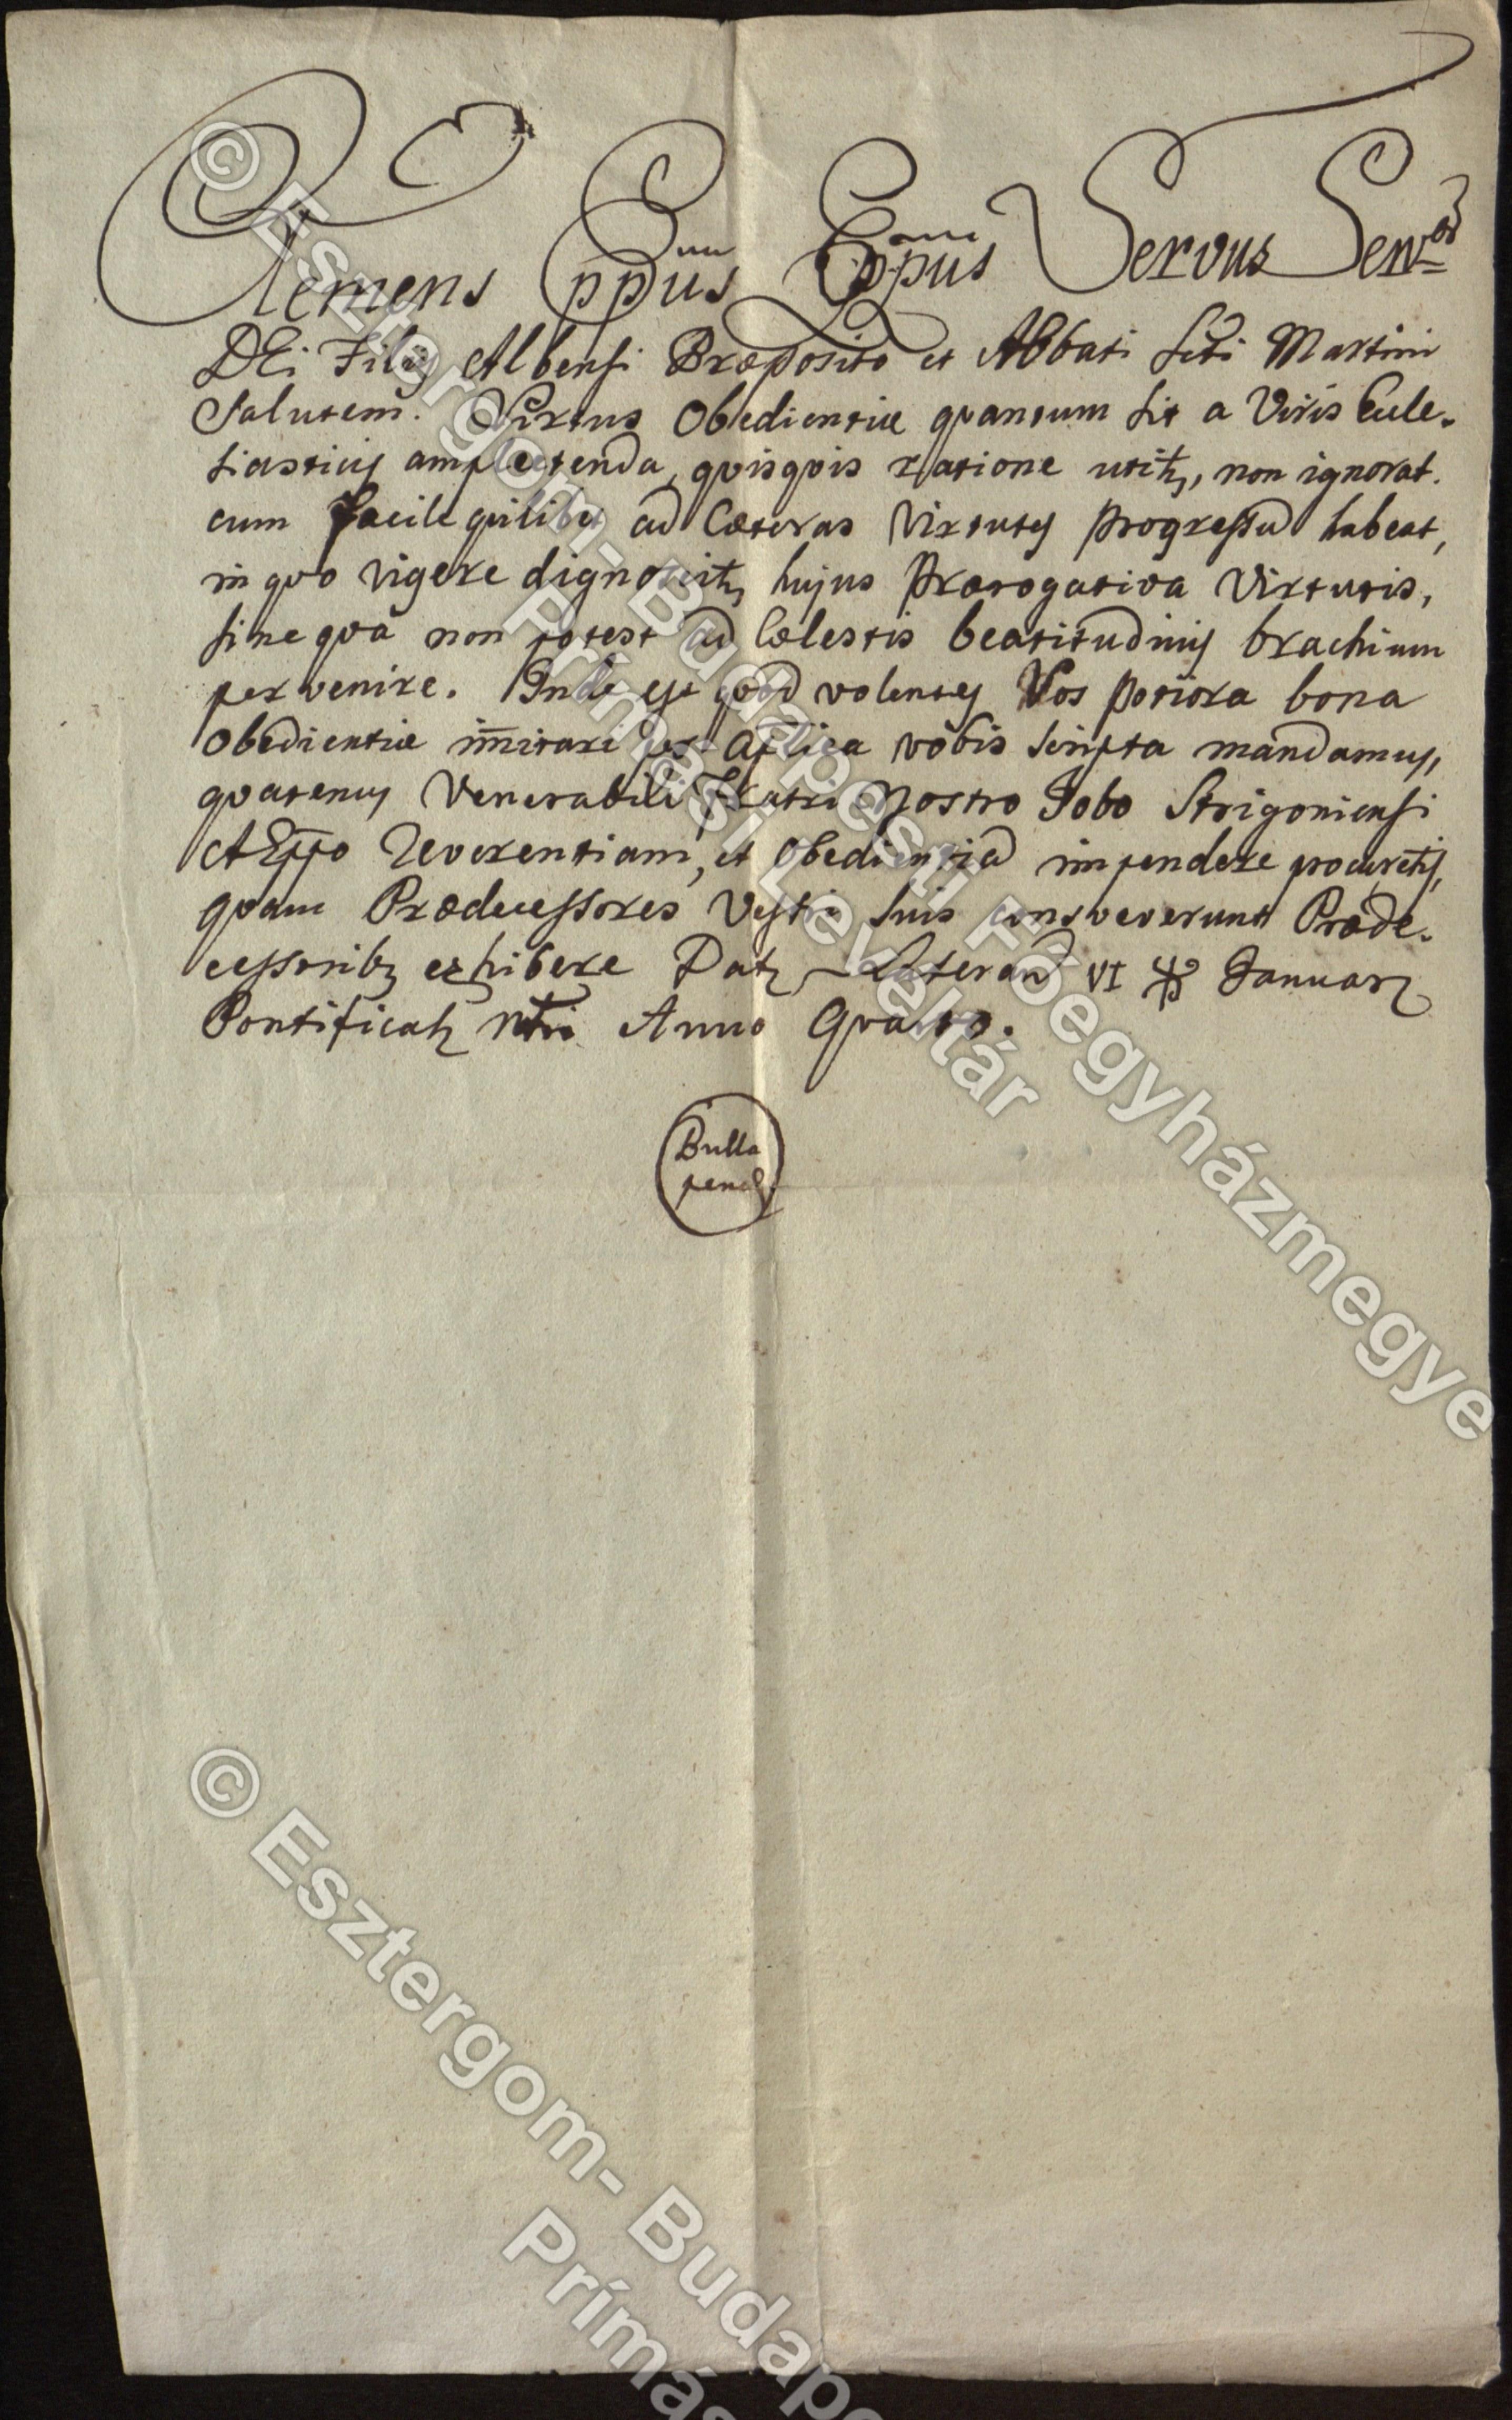 Clemens Eppus Eppus Servus Servor
DEi Filiis Albensi Præposito et Abbati Scti Martini
Salutem. Virtus Obedientiæ quantum sit a Viris Eccle-
siasticis amplectenda, quisquis ratione utitr, non ignorat.
cum facile quilibet ad Cæteras Virtutes progressū habeat,
in quo vigere dignoscitr hujus prærogativa Virtutis,
sine qvâ non potest ad Cœlestis beatitudinis brachium
pervenire. Inde est qvod volentes Vos potiora bona
Obedientiæ im̄itari per Aplica vobis scripta mandamus,
qvatenus Venerabili Fratri Nostro Jobo Strigoniensi
AEppo Reverentiam, et Obedientiā impendere procuretis,
qvam Prædecessores Vestri suis consveverunt Præde-
cessoribq exhibere Datr Laterani VI Januarr
Pontificatr Ntri Anno Qvarto.
Bulla
pend.
© Esztergom- Budapesti Főegyházmegye
Prímási Levéltár
© Esztergom- Budape
Prímás